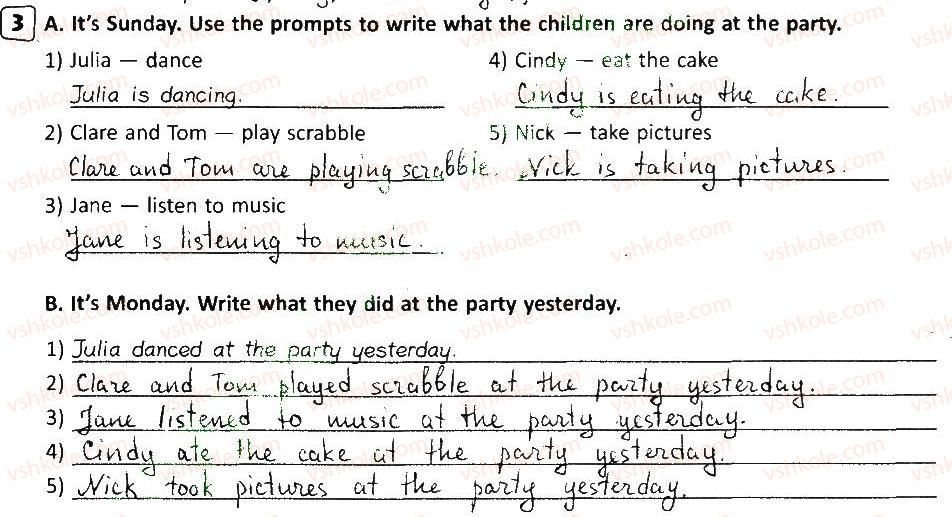 3 A. It's Sunday. Use the prompts to write what the children are doing at the party.
1) Julia — dance
Julia is dancing.
2) Clare and Tom — play scrabble
Clare and Tom are playing scrabble.
3) Jane — listen to music
Jane is listening to music.
4) Cindy — eat the cake
Cindy is eating the cake.
5) Nick — take pictures
Nick is taking pictures.
B. It's Monday. Write what they did at the party yesterday.
1) Julia danced at the party yesterday.
2) Clare and Tom played scrabble at the party yesterday.
3) Jane listened to music at the party yesterday.
4) Cindy ate the cake at the party yesterday.
5) Nick took pictures at the party yesterday.
vshkole.com